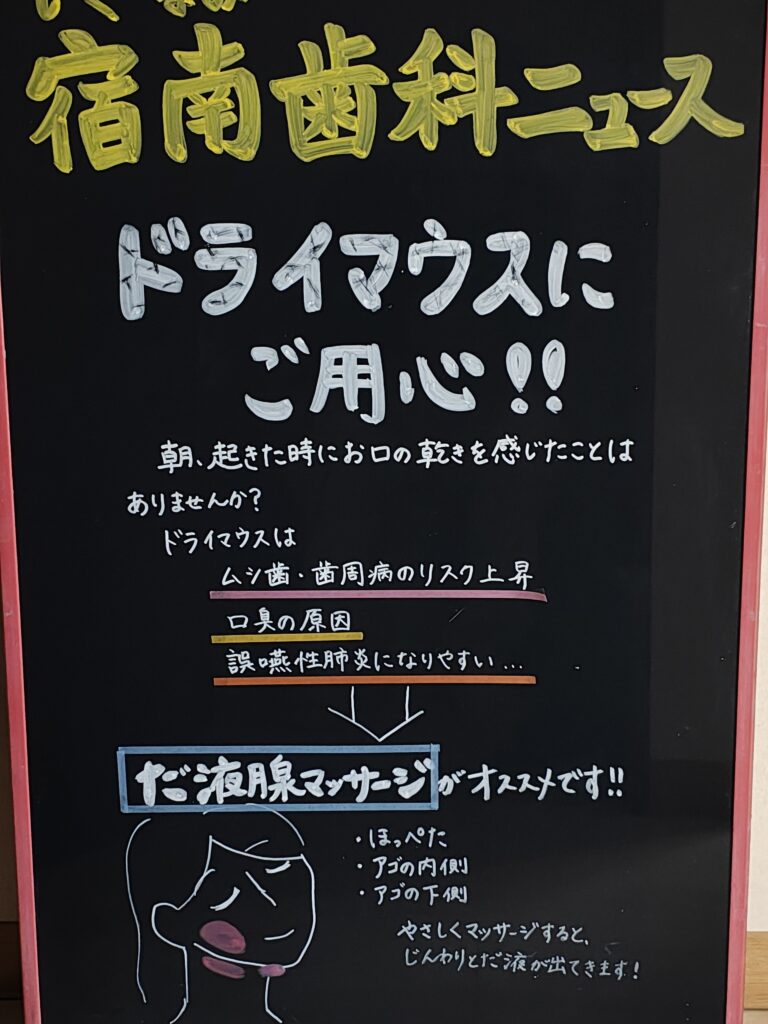 宿南歯科ニュース
ドライマウスに
ご用心!!
朝、起きた時にお口の乾きを感じたことは
ありませんか?
ドライマウスは
ムシ歯・歯周病のリスク上昇
口臭の原因
誤嚥性肺炎になりやすい…
だ液腺マッサージがオススメです!!
・ほっぺた
・アゴの内側
・アゴの下側
やさしくマッサージすると、
じんわりとだ液が出てきます!